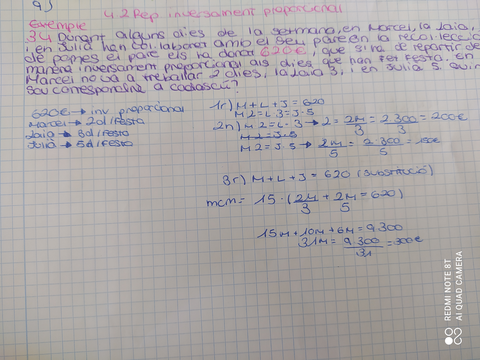 a)
4.2 Rep inversament proporcional
Exemple
34 Durant alguns dies de la setmana, en Marcel, la Laia,
i en Julià han col·laborat amb el seu pare en la recol·lecció
de pomes el pare els ha donat 620€, que s'ha de repartir de
manera inversament proporcional als dies que han fet festa. En
Marcel no va a treballar 2 dies, la Laia 3, i en Julià 5. Quin
sou correspondrà a cadascú?
620€ → inv proporcional
Marcel → 2d/festa
Laia → 3d/festa
Julià → 5d/festa
1r) M + L + J = 620
M·2 = L·3 = J·5
2n) M·2 = L·3 → L = 2M/3 = 2·300/3 = 200€
M·2 = J·5
M·2 = J·5 → 2M/5 = 2·300/5 = 150€
3r) M + L + J = 620 (substitució)
mcm = 15 · (2M/3 + 2M/5 = 620)
15M + 10M + 6M = 9.300
31M = 9.300/31 = 300€
REDMI NOTE 8T
AI QUAD CAMERA